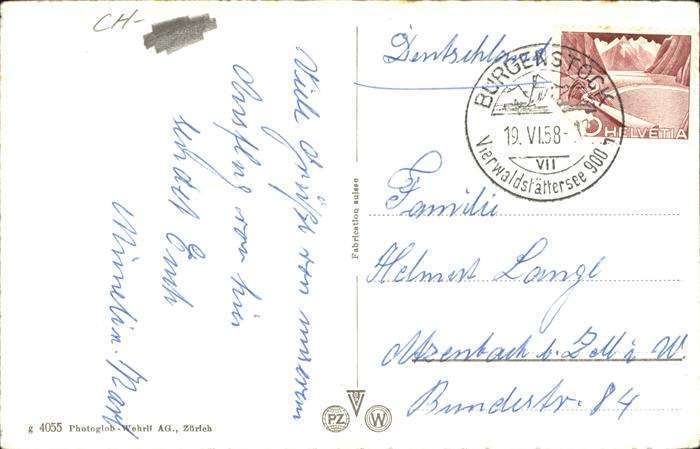 CH-
Viele Grüße von unserem
Ausflug von hier
sendet Euch
Deutschland
BÜRGENSTOCK
19. VI. 58-
VII
Vierwaldstättersee 900 m
5 HELVETIA
Familie
Helmut Lange
Atzenbach b. Zell i. W.
Bundestr. 84
Fabrication suisse
PZ
W
g 4055 Photoglob-Wehrli AG., Zürich